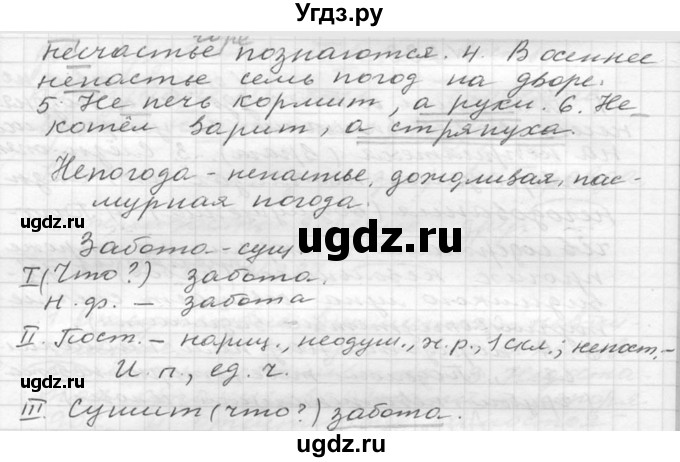 Угдз.ру
горе
несчастье познаются. 4. В осеннее
непастье семь погод на дворе.
5. Не печь кормит, а руки. 6. Не
котёл варит, а стряпуха.
Непогода - непастье, дождливая, пас-
мурная погода.
ugdz.ru ugdz.ru
Забота - сущ
I (Что?) забота.
н. ф. — забота
II. Пост. - нариц., неодуш., ж.р., 1 скл.; непост. -
И. п., ед. ч.
ugdz.ru ugdz.ru
III. Сушит (что?) забота.
ugdz.ru